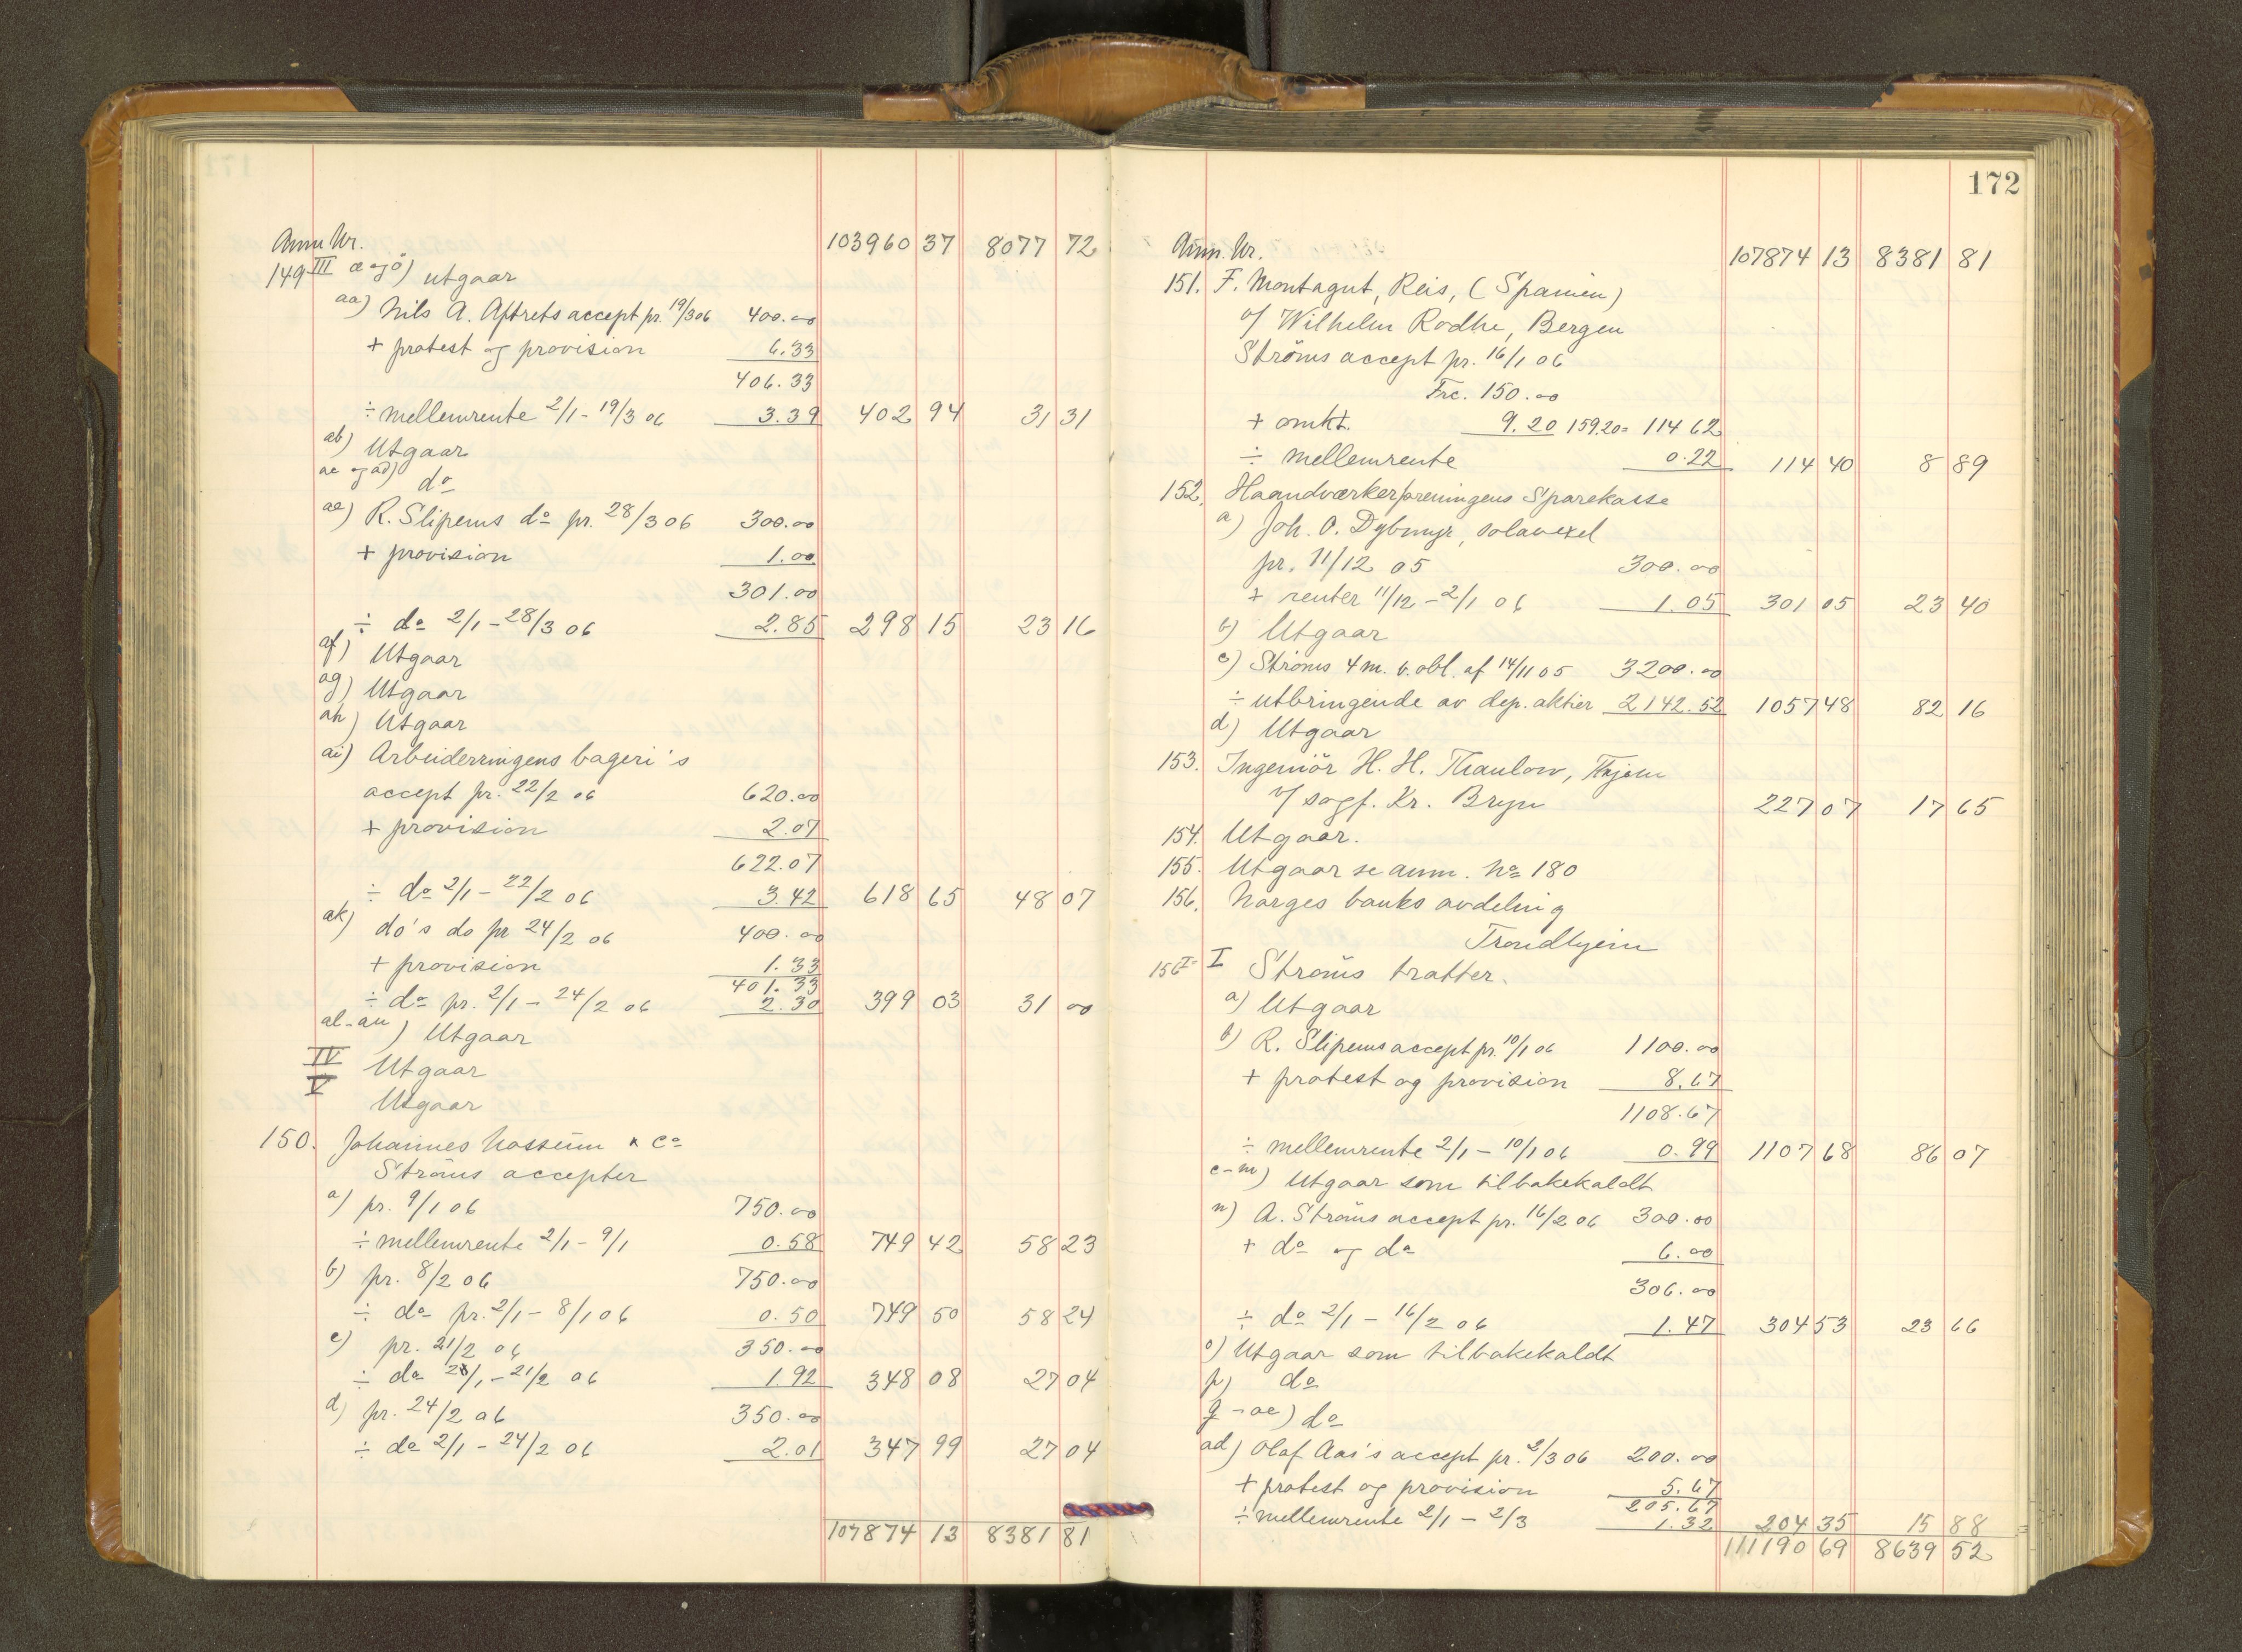 Anm Nr. 103960 37 8077 72
149 III æ og ö) utgaar
aa) Nils A. Aftrets accept pr. 19/3 06 400.00
+ protest og provision 6.33
406.33
÷ mellemrente 2/1 - 19/3 06 3.39 402 94 31 31
ab) Utgaar
ac og ad) do
ae) R. Slipems do pr. 28/3 06 300.00
+ provision 1.00
301.00
÷ do 2/1 - 28/3 06 2.85 298 15 23 16
af) Utgaar
ag) Utgaar
ah) Utgaar
ai) Arbeiderringens bageri's
accept pr. 22/2 06 620.00
+ provision 2.07
622.07
÷ do 2/1 - 22/2 06 3.42 618 65 48 07
ak) do's do pr 24/2 06 400.00
+ provision 1.33
401.33
÷ do pr. 2/1 - 24/2 06 2.30 399 03 31 00
al-au) Utgaar
IV Utgaar
V Utgaar
150. Johannes Mossum & Co
Ströms accepter
a) pr. 9/1 06 750.00
÷ mellemrente 2/1 - 9/1 0.58 749 42 58 23
b) pr. 8/2 06 750.00
÷ do pr. 2/1 - 8/1 06 0.50 749 50 58 24
c) pr. 21/2 06 350.00
÷ do 2/1 - 21/2 06 1.92 348 08 27 04
d) pr. 24/2 06 350.00
÷ do 2/1 - 24/2 06 2.01 347 99 27 04
107874 13 8381 81
172
Anm. Nr. 107874 13 8381 81
151. F. Montagut, Reis, (Spanien)
v/ Wilhelm Rodhe, Bergen
Ströms accept pr. 16/1 06
Frc. 150.00
+ omkt. 9.20 159.20 = 114 62
÷ mellemrente 0.22 114 40 8 89
152. Haandværkerforeningens Sparekasse
a) Joh. O. Dybmyr, solavexel
pr. 11/12 05 300.00
+ renter 11/12 - 2/1 06 1.05 301 05 23 40
b) Utgaar
c) Ströms 4 m. b. obl. af 14/11 05 3200.00
÷ utbringende av dep. aktier 2142.52 1057 48 82 16
d) Utgaar
153. Ingeniör H. H. Thaulow, Thjem
v/ sagf. Kr. Bryn 227 07 17 65
154. Utgaar.
155. Utgaar se anm. No 180
156. Norges banks avdeling
Trondhjem
156 I I Ströms tratter.
a) Utgaar
b) R. Slipems accept pr. 10/1 06 1100.00
+ protest og provision 8.67
1108.67
÷ mellemrente 2/1 - 10/1 06 0.99 1107 68 86 07
c-m) Utgaar som tilbakekaldt
n) A. Ströms accept pr. 16/2 06 300.00
+ do og do 6.00
306.00
÷ do 2/1 - 16/2 06 1.47 304 53 23 66
o) Utgaar som tilbakekaldt
p) do
q - ac) do
ad) Olaf Aas's accept pr. 2/3 06 200.00
+ protest og provision 5.67
205.67
÷ mellemrente 2/1 - 2/3 1.32 204 35 15 88
111190 69 8639 52